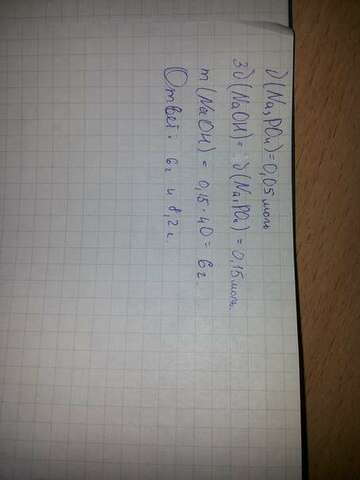 ν(Na₃PO₄)=0,05 моль
3ν(NaOH)= ν(Na₃PO₄)=0,15 моль.
m(NaOH) = 0,15·40=6г.
Ответ: 6г и 8,2г.